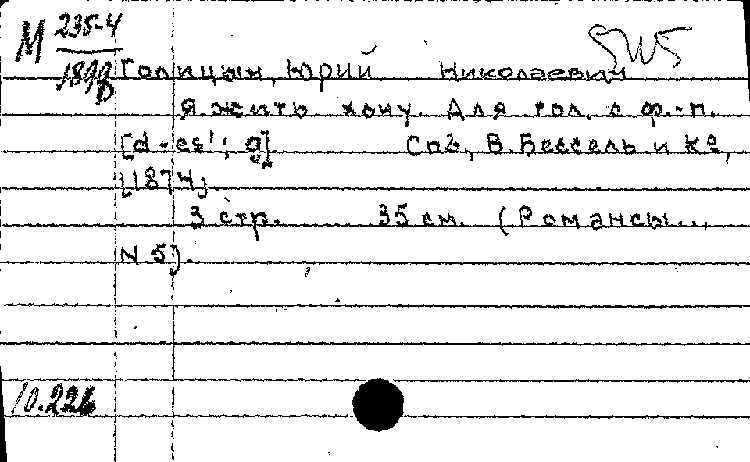 М 235-4
SW5
Голицын, Юрий Николаевич
Я жить хочу. Для гол. с ф.-п.
[d-es'; g]. Спб., В. Бессель и К°,
[1874].
3 стр. 35 см. (Романсы...
N 5).
10.226